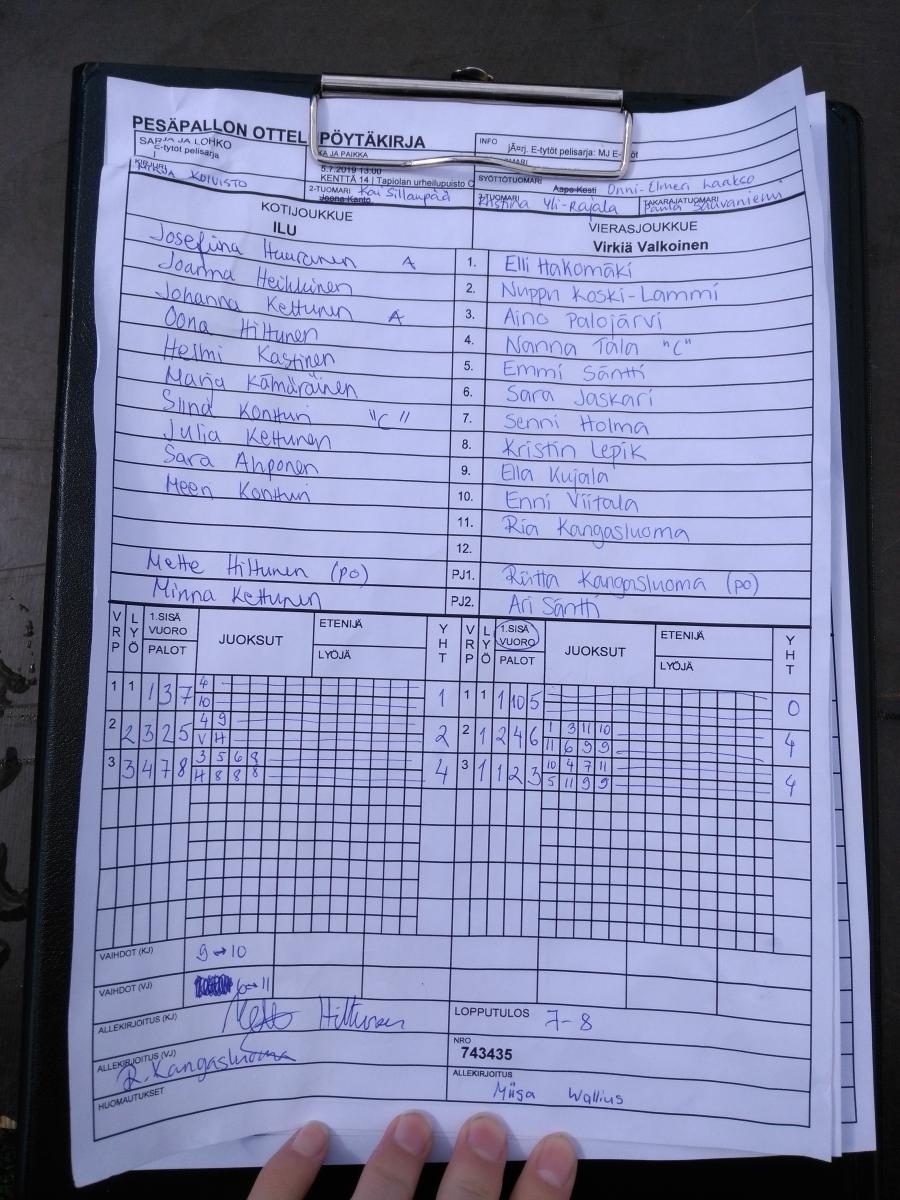 PESÄPALLON OTTEL PÖYTÄKIRJA
SARJA JA LOHKO
E-tytöt pelisarja
KA JA PAIKKA
5.7.2019 13:00
KENTTÄ 14 | Tapiolan urheilupuisto
INFO
jÃ¤rj. E-tytöt pelisarja: MJ E- öt
KIRJURI
Mirja Koivisto
2-TUOMARI Kai Sillanpää
Joona Kanto
SYÖTTÖTUOMARI Aapo Kesti Onni-Elmeri Laakso
3-TUOMARI Kristina Yli-Rajala
TAKARAJATUOMARI Paula Sauvaniemi
KOTIJOUKKUE
ILU
VIERASJOUKKUE
Virkiä Valkoinen
Josefiina Huurinen A 1. Elli Hakomäki
Joanna Heikkinen 2. Nuppu Koski-Lammi
Johanna Kettunen A 3. Aino Palojärvi
Oona Hiltunen 4. Nanna Tala "C"
Helmi Kastinen 5. Emmi Säntti
Marja Kämäräinen 6. Sara Jaskari
Siina Kontturi "C" 7. Senni Holma
Julia Kettunen 8. Kristin Lepik
Sara Ahponen 9. Ella Kujala
Meeri Kontturi 10. Enni Viitala
11. Ria Kangasluoma
12.
Mette Hiltunen (po) PJ1. Riitta Kangasluoma (po)
Minna Kettunen PJ2. Ari Säntti
VRP LYÖ 1.SISÄ VUORO PALOT JUOKSUT ETENIJÄ LYÖJÄ YHT VRP LYÖ 1.SISÄ VUORO PALOT JUOKSUT ETENIJÄ LYÖJÄ YHT
1 1 1 3 7 4 1 1 1 1 10 5 0
10
2 2 3 2 5 4 9 2 2 1 2 4 6 1 3 11 10 4
V H 11 6 9 9
3 3 4 7 8 3 5 6 8 4 3 1 1 2 3 10 4 7 11 4
H 8 8 8 5 11 9 9
VAIHDOT (KJ) 9→10
VAIHDOT (VJ) 6→11
ALLEKIRJOITUS (KJ) Mette Hiltunen
LOPPUTULOS 7-8
ALLEKIRJOITUS (VJ) R.Kangasluoma
NRO
743435
HUOMAUTUKSET
ALLEKIRJOITUS
Miisa Wallius